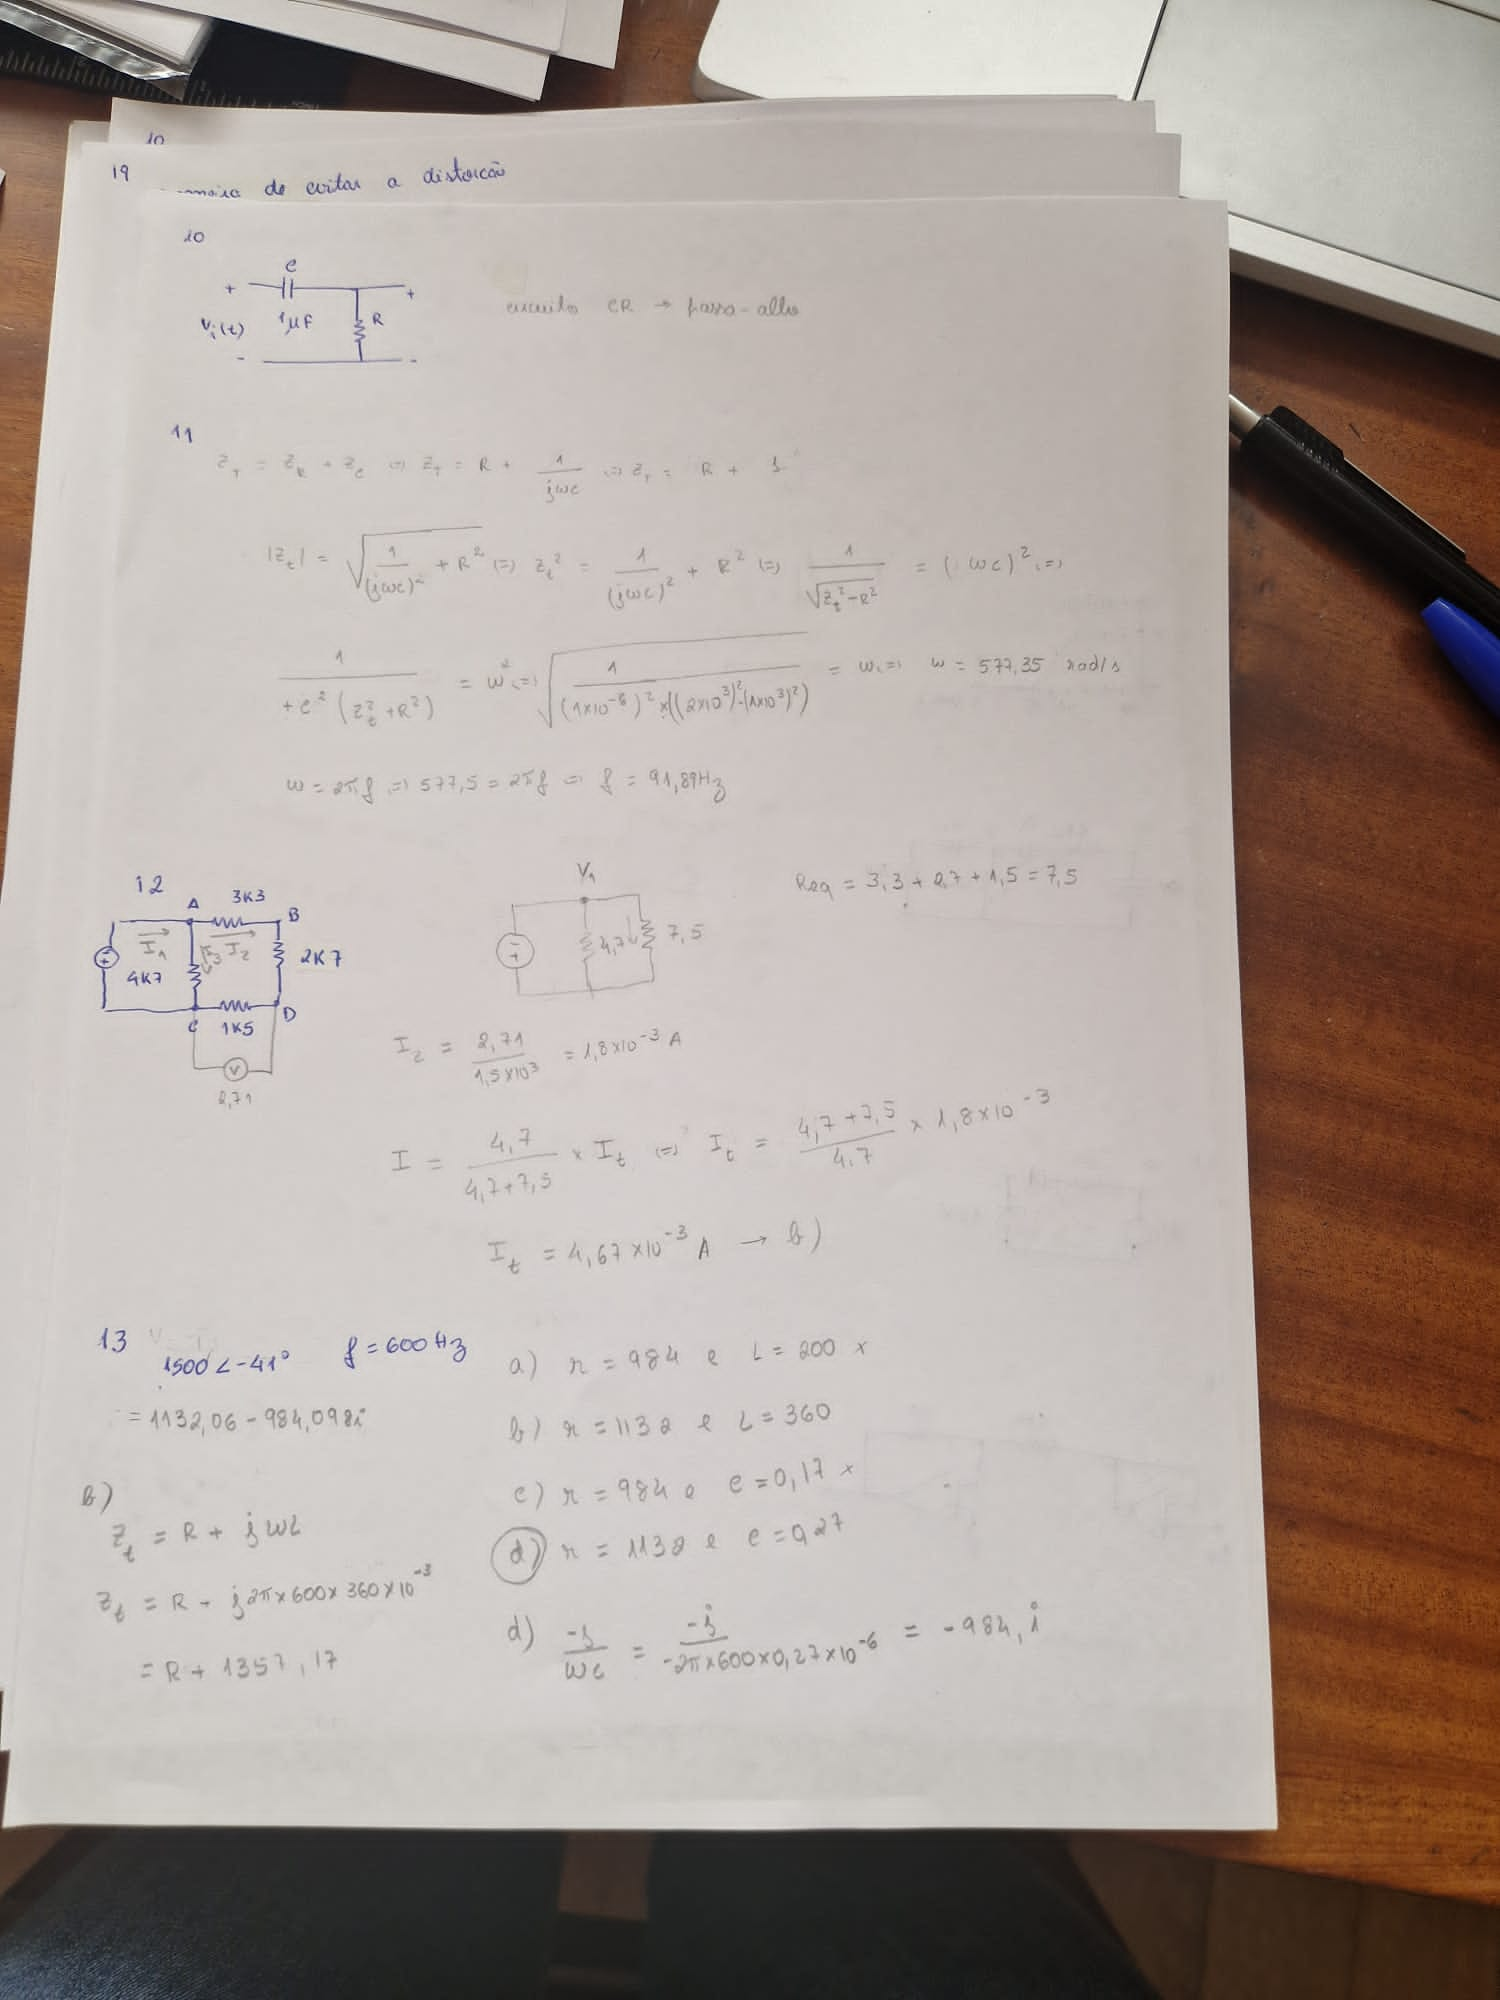 10
19
de evitar a distorção
10
C
+ +
Vi(t) 1µF R
- -
circuito CR → passa-alto
11
Z_T = Z_R + Z_C (=) Z_T = R + 1/(jωC) (=) Z_T = R + 1
|Z_t| = √(1/(jωC)² + R²) (=) Z_t² = 1/(jωC)² + R² (=) 1/√(Z_t² - R²) = (ωC)² (=)
1/(+C² (Z_t² + R²)) = ω² (=) √(1/((1x10⁻⁶)² x ((2x10³)² - (1x10³)²))) = ω (=) ω = 577,35 rad/s
ω = 2πf (=) 577,5 = 2πf (=) f = 91,89Hz
12
A 3K3 B
I₁ I₃ I₂
4K7 2K7
C 1K5 D
V
2,71
V₁
4,7 7,5
Req = 3,3 + 2,7 + 1,5 = 7,5
I₂ = 2,71/(1,5x10³) = 1,8x10⁻³ A
I = 4,7/(4,7+7,5) x I_t (=) I_t = (4,7+7,5)/4,7 x 1,8x10⁻³
I_t = 4,67x10⁻³ A → b)
13
1500∠-41° f = 600Hz
= 1132,06 - 984,098i
a) r = 984 e L = 200 x
b) r = 1132 e L = 360
c) r = 984 e C = 0,17 x
d) r = 1132 e C = 0,27
b)
Z_t = R + jωL
Z_t = R + j2π x 600 x 360 x 10⁻³
= R + 1357,17
d) -j/(ωC) = -j/(-2π x 600 x 0,27 x 10⁻⁶) = -984, i